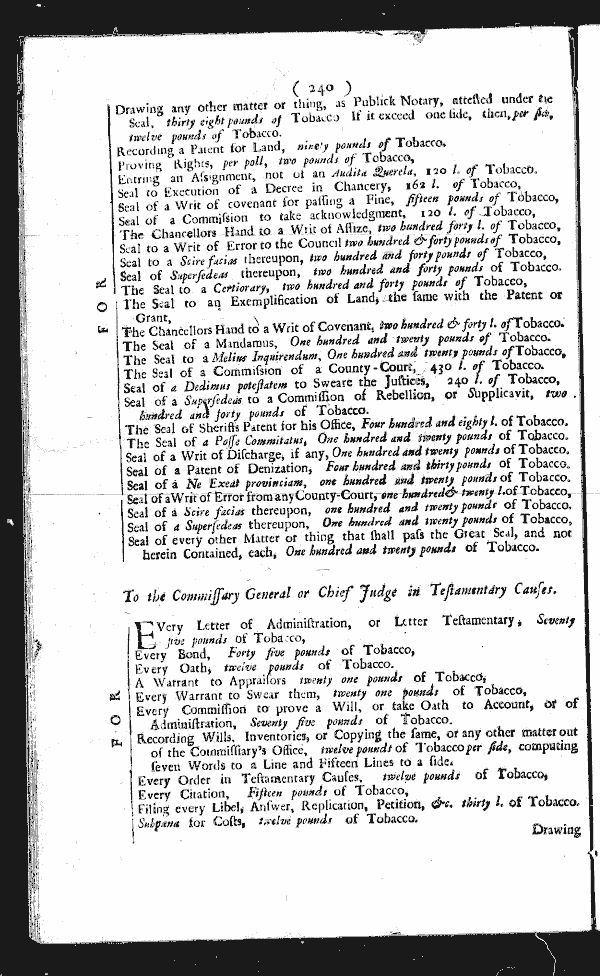 ( 240 )
Drawing any other matter or thing, as Publick Notary, attested under the
Seal, thirty eight pounds of Tobacco If it exceed one side, then, per side,
twelve pounds of Tobacco.
Recording a Patent for Land, ninety pounds of Tobacco,
Proving Rights, per poll, two pounds of Tobacco,
Entring an Assignment, not of an Audita Querela, 120 l. of Tobacco.
Seal to Execution of a Decree in Chancery, 162 l. of Tobacco,
Seal of a Writ of covenant for passing a Fine, fifteen pounds of Tobacco,
Seal of a Commission to take acknowledgment, 120 l. of Tobacco,
The Chancellors Hand to a Writ of Assize, two hundred forty l. of Tobacco,
Seal to a Writ of Error to the Council two hundred & forty pounds of Tobacco,
Seal to a Scire facias thereupon, two hundred and forty pounds of Tobacco,
Seal of Supersedeas thereupon, two hundred and forty pounds of Tobacco.
The Seal to a Certiorary, two hundred and forty pounds of Tobacco,
The Seal to an Exemplification of Land, the same with the Patent or
Grant,
The Chancellors Hand to a Writ of Covenant, two hundred & forty l. of Tobacco.
The Seal of a Mandamus, One hundred and twenty pounds of Tobacco.
The Seal to a Melius Inquirendum, One hundred and twenty pounds of Tobacco,
The Seal of a Commission of a County-Court, 430 l. of Tobacco.
Seal of a Dedimus potestatem to Sweare the Justices, 240 l. of Tobacco,
Seal of a Supersedeas to a Commission of Rebellion, or Supplicavit, two
hundred and forty pounds of Tobacco.
The Seal of Sheriffs Patent for his Office, Four hundred and eighty l. of Tobacco.
The Seal of a Posse Commitatus, One hundred and twenty pounds of Tobacco.
Seal of a Writ of Discharge, if any, One hundred and twenty pounds of Tobacco.
Seal of a Patent of Denization, Four hundred and thirty pounds of Tobacco.
Seal of a Ne Exeat provinciam, one hundred and twenty pounds of Tobacco.
Seal of a Writ of Error from any County-Court, one hundred & twenty l. of Tobacco,
Seal of a Scire facias thereupon, one hundred and twenty pounds of Tobacco.
Seal of a Supersedeas thereupon, One hundred and twenty pounds of Tobacco,
Seal of every other Matter or thing that shall pass the Great Seal, and not
herein Contained, each, One hundred and twenty pounds of Tobacco.
FOR
To the Commissary General or Chief Judge in Testamentary Causes.
EVery Letter of Administration, or Letter Testamentary, Seventy
five pounds of Tobacco,
Every Bond, Forty five pounds of Tobacco,
Every Oath, twelve pounds of Tobacco.
A Warrant to Appraisors twenty one pounds of Tobacco,
Every Warrant to Swear them, twenty one pounds of Tobacco,
Every Commission to prove a Will, or take Oath to Account, or of
Administration, Seventy five pounds of Tobacco.
Recording Wills. Inventories, or Copying the same, or any other matter out
of the Commissiary's Office, twelve pounds of Tobacco per side, computing
seven Words to a Line and Fifteen Lines to a side.
Every Order in Testamentary Causes, twelve pounds of Tobacco,
Every Citation, Fifteen pounds of Tobacco,
Filing every Libel, Answer, Replication, Petition, &c. thirty l. of Tobacco.
Subpana for Costs, twelve pounds of Tobacco.
FOR
Drawing